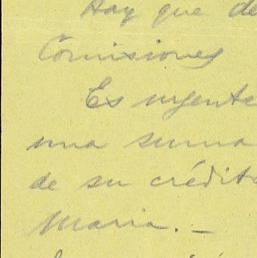 Hay que de
Comisiones
Es urgente
una suma
de su crédito
Maria. -